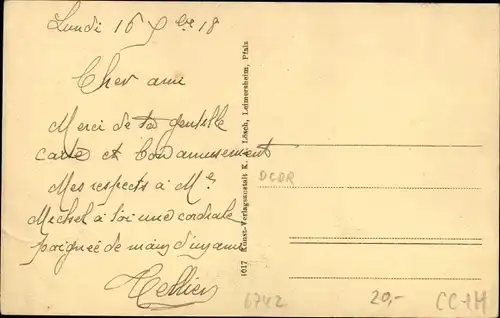 Lundi 16 Xbre 18
Cher ami
Merci de ta gentille
carte et bon amusement
Mes respects à Me
Michel à toi une cordiale
poignée de main d'un ami
Tellier
1617 Kunst-Verlagsanstalt K. Lösch, Leimersheim, Pfalz
DCDR
6742
20,-
CC+H